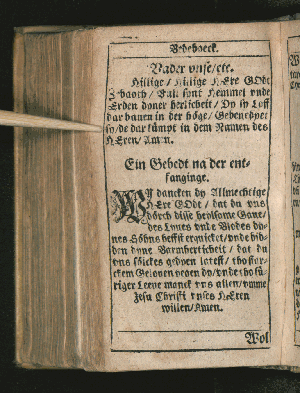 Bedeboeck.
Vader vnse/etc.
Hillige / Hillige HEre GOdt
Zebaoth / Vull sint Hemmel vnde
Erden dyner herlicheit / Dy sy Loff
dar bauen in der höge / Gebenedyet
sy/de dar kümpt in dem Namen des
HEren / Amen.
Ein Gebedt na der ent-
fanginge.
WY dancken dy Allmechtige
HEre GOdt / dat du vns
dörch disse heylsame Gaue /
des Lyues vnde Blodes dy-
nes Söhns heffst erquicket / vnde bid-
den dyne Barmherticheit / dat du
vns sölckes gedyen latest / tho star-
ckem Gelouen yegen dy/vnde tho fü-
riger Leeue manck vns allen/vmme
Jesu Christi vnses HEren
willen/Amen.
Wol